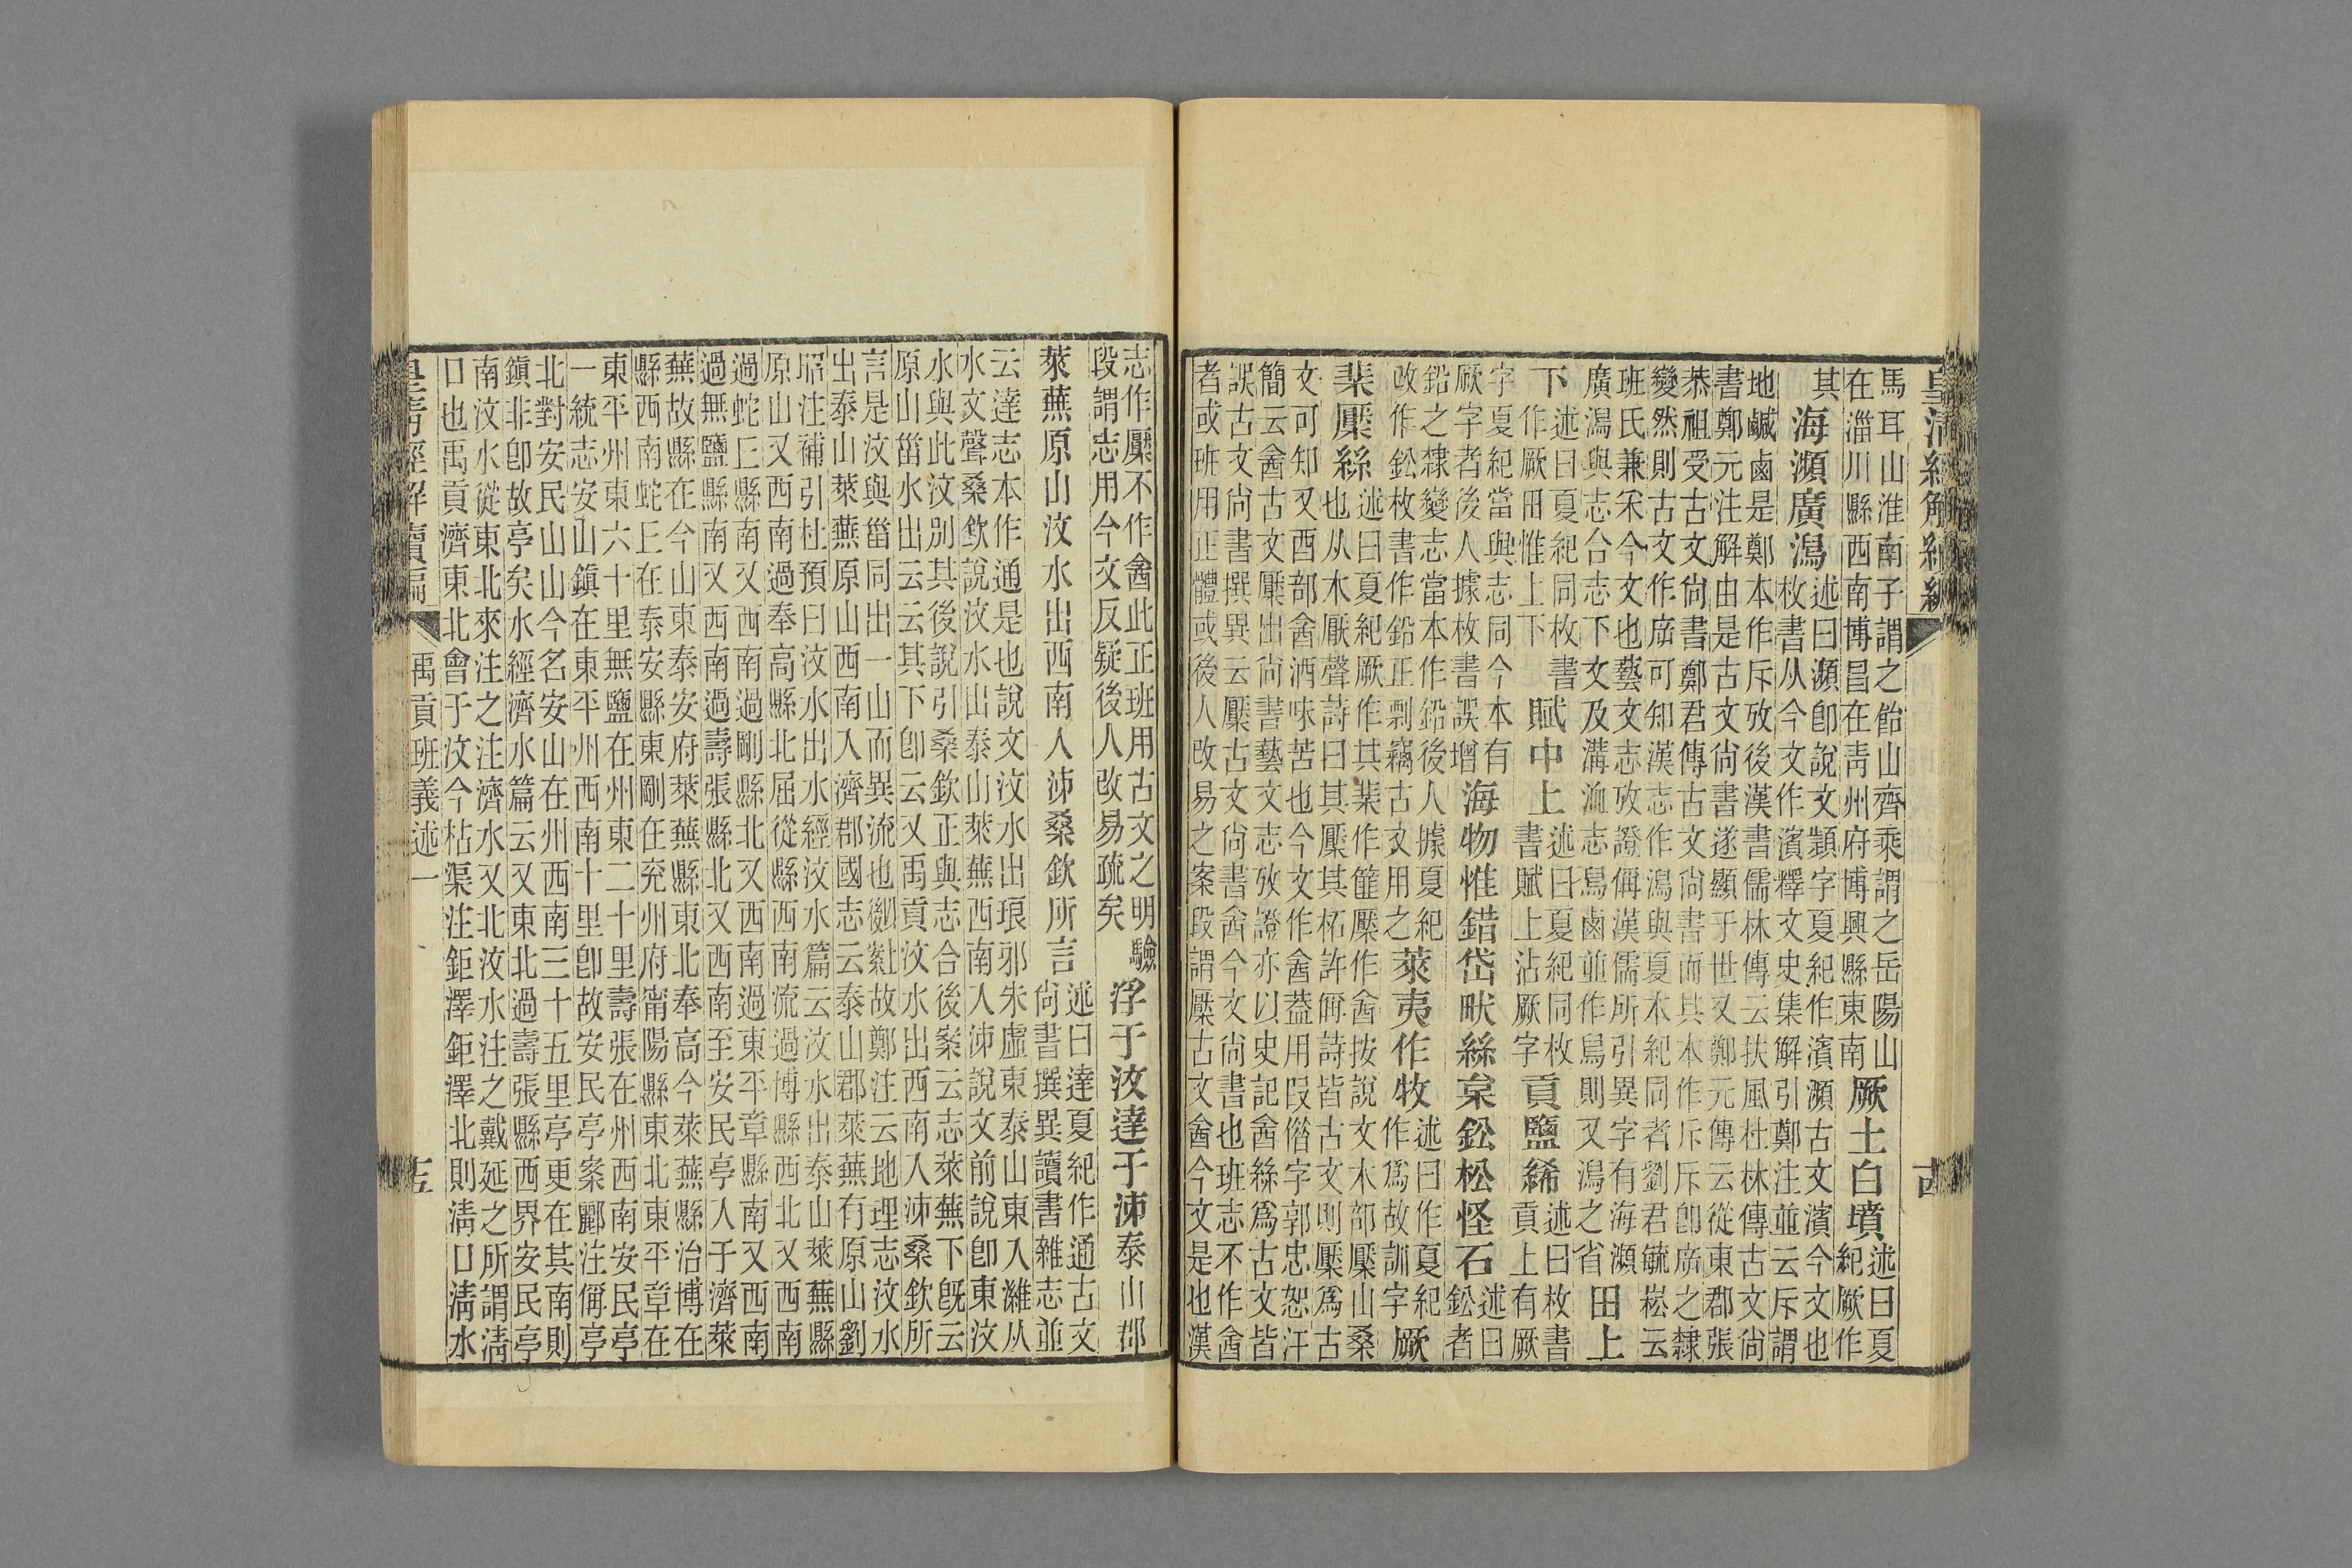 皇清經解續編
馬耳山淮南子謂之飴山齊乘謂之岳陽山
在淄川縣西南博昌在青州府博興縣東南
厥土白墳
述曰夏
紀厥作
其
海瀕廣潟
述曰瀕卽說文顈字夏紀作濱瀕古文濱今文也
枚書从今文作濱釋文史集解引鄭注並云斥謂
地鹹鹵是鄭本作斥攷後漢書儒林傳云扶風杜林傳古文尙
書鄭元注解由是古文尙書遂顯于世又鄭元傳云從東郡張
恭祖受古文尙書鄭君傳古文尙書而其本作斥斥卽㡿之隸
變然則古文作㡿可知漢志作潟與夏本紀同者劉君毓崧云
班氏兼采今文也藝文志攷證偁漢儒所引異字有海瀕
廣潟與志合志下文及溝洫志舄鹵並作舄則又潟之省
田上
下
述曰夏紀同枚書
作厥田惟上下
賦中上
述曰夏紀同枚
書賦上沾厥字
貢鹽絺
述曰枚書
貢上有厥
字夏紀當與志同今本有
厥字者後人據枚書誤增
海物惟錯岱畎絲枲鈆松怪石
述曰
鈆者
鉛之隸變志當本作鉛後人據夏紀
改作鈆枚書作鉛正剽竊古文用之
萊夷作牧
述曰作夏紀
作爲故訓字
厥
棐檿絲
述曰夏紀厥作其棐作篚檿作酓按說文木部檿山桑
也从木厭聲詩曰其檿其柘許偁詩皆古文則檿爲古
文可知又酉部酓酒味苦也今文作酓葢用叚借字郭忠恕汗
簡云酓古文檿出尙書藝文志攷證亦以史記酓絲爲古文皆
誤古文尙書撰異云檿古文尙書酓今文尙書也班志不作酓
者或班用正體或後人改易之案段謂檿古文酓今文是也漢
志作檿不作酓此正班用古文之明驗
段謂志用今文反疑後人改易疏矣
浮于汶達于泲泰山郡
萊蕪原山汶水出西南入泲桑欽所言
述曰達夏紀作通古文
尙書撰異讀書雜志並
云達志本作通是也說文汶水出琅邪朱虛東泰山東入濰从
水文聲桑欽說汶水出泰山萊蕪西南入泲說文前說卽東汶
水與此汶別其後說引桑欽正與志合後案云志萊蕪下旣云
原山甾水出云云其下卽云又禹貢汶水出西南入泲桑欽所
言是汶與甾同出一山而異流也故鄭注云地理志汶水
出泰山萊蕪原山西南入濟郡國志云泰山郡萊蕪有原山劉
昭注補引杜預曰汶水出水經汶水篇云汶水出泰山萊蕪縣
原山又西南過奉高縣北屈從縣西南流過博縣西北又西南
過蛇丘縣南又西南過剛縣北又西南過東平章縣南又西南
過無鹽縣南又西南過壽張縣北又西南至安民亭入于濟萊
蕪故縣在今山東泰安府萊蕪縣東北奉高今萊蕪縣治博在
縣西南蛇丘在泰安縣東剛在兖州府甯陽縣東北東平章在
東平州東六十里無鹽在州東二十里壽張在州西南安民亭
一統志安山鎭在東平州西南十里卽故安民亭案酈注偁亭
北對安民山山今名安山在州西南三十五里亭更在其南則
鎭非卽故亭矣水經濟水篇云又東北過壽張縣西界安民亭
南汶水從東北來注之注濟水又北汶水注之戴延之所謂淸
口也禹貢濟東北會于汶今枯渠注鉅澤鉅澤北則淸口淸水
皇清經解續編
禹貢班義述一